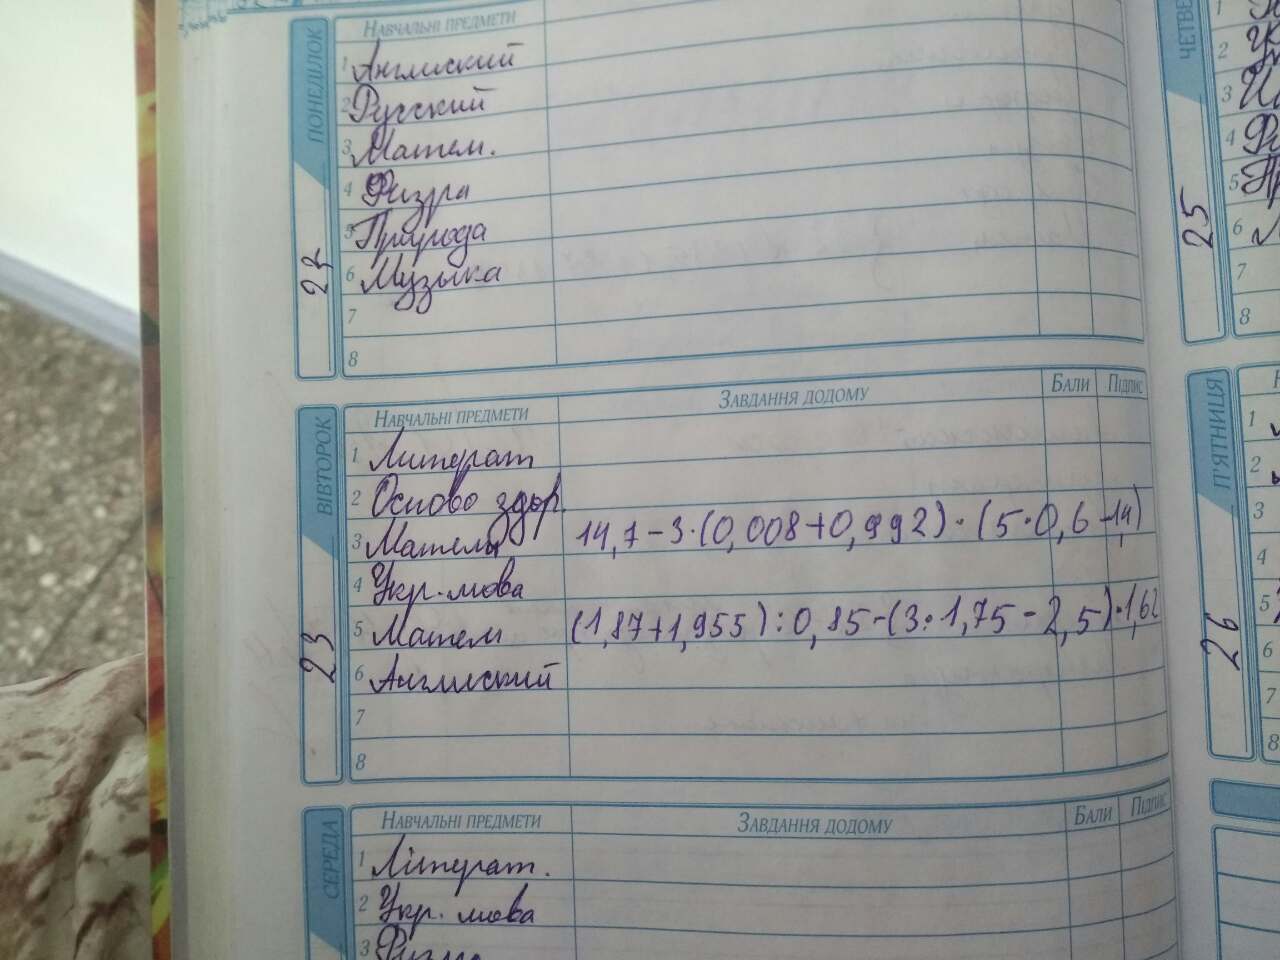 ПОНЕДІЛОК
22
НАВЧАЛЬНІ ПРЕДМЕТИ
1 Английский
2 Русский
3 Матем.
4 Физра
5 Природа
6 Музыка
7
8
ВІВТОРОК
23
НАВЧАЛЬНІ ПРЕДМЕТИ ЗАВДАННЯ ДОДОМУ БАЛИ ПІДПИС
1 Литерат
2 Осново здор.
3 Матем 14,7-3·(0,008+0,992)·(5·0,6-1,4)
4 Укр. мова
5 Матем (1,87+1,955):0,85-(3·1,75-2,5)·1,62
6 Английский
7
8
СЕРЕДА
НАВЧАЛЬНІ ПРЕДМЕТИ ЗАВДАННЯ ДОДОМУ БАЛИ ПІДПИС
1 Літерат.
2 Укр. мова
3 Физра
25
1
2
3
4
5
6
7
8
П'ЯТНИЦЯ
26
1
2
3
4
5
6
7
8